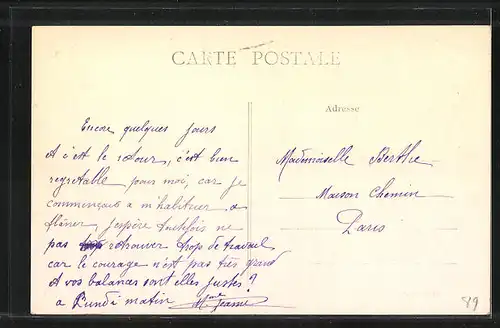 CARTE POSTALE
Adresse
Encore quelques jours
et c'est le retour, c'est bien
regrettable pour moi, car je
commençais a m'habituer a
flâner, j'espère toutefois ne
pas trop retrouver trop de travail
car le courage n'est pas très grand
et vos balances sont elles justes ?
a Lundi matin Mme Jeanne
Mademoiselle Berthe
Maison Chemin
Paris
89